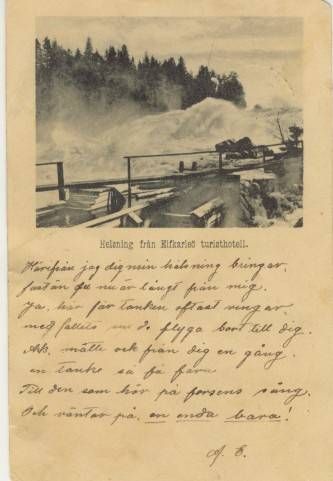 Helsning från Elfkarleö turisthotell.
Härifrån jag dig min helsning bringar,
fastän du nu är långt från mig.
Ja, här får tanken oftast vingar,
med till att flyga bort till dig.
Ack, måtte ock från dig en gång
en tanke så få fara
Till den som hör på forsens sång,
Och väntar på, en enda bara!